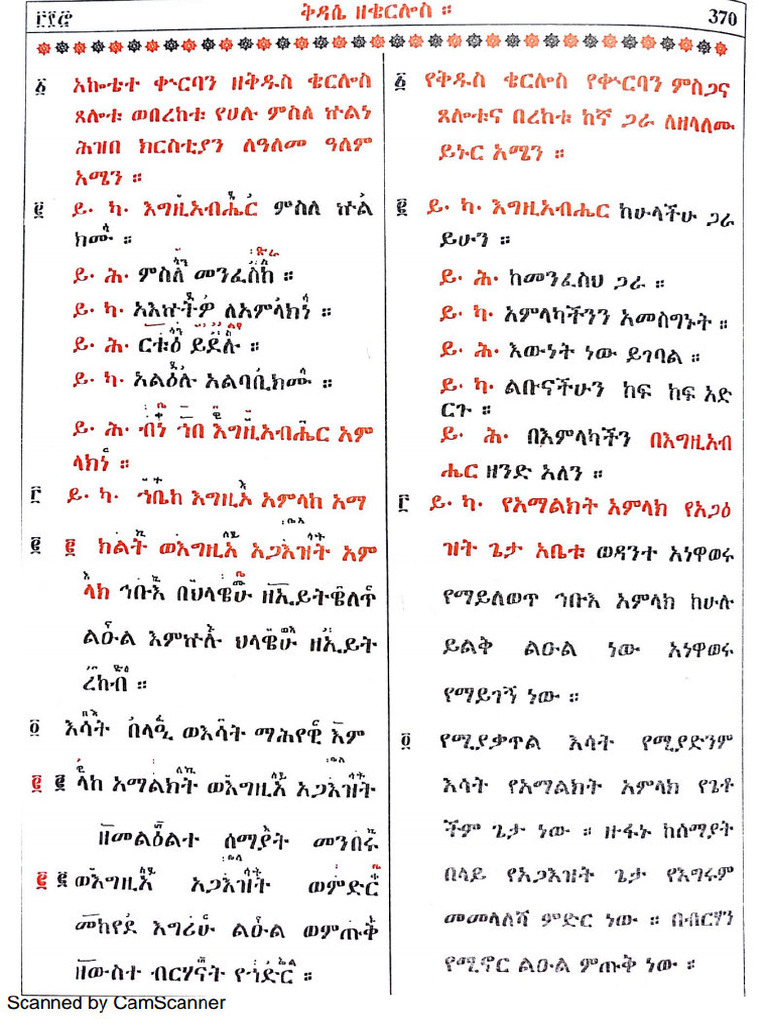 ቅዳሴ ዘቄርሎስ ።
370
፩ አኰቴተ ቍርባን ዘቅዱስ ቄርሎስ
ጸሎቱ ወበረከቱ የሀሉ ምስለ ኵልነ
ሕዝበ ክርስቲያን ለዓለመ ዓለም
አሜን ።
፪ ይ. ካ. እግዚአብሔር ምስለ ኵል
ክሙ ።
ይ. ሕ. ምስለ መንፈስከ ።
ይ. ካ. አእኵትዎ ለአምላክነ ።
ይ. ሕ. ርቱዕ ይደሉ ።
ይ. ካ. አልዕሉ አልባቢክሙ ።
ይ. ሕ. ብነ ኀበ እግዚአብሔር አም
ላክነ ።
፫ ይ. ካ. ኀቤከ እግዚኦ አምላከ አማ
፪ ፪ ክልት ወእግዚአ አጋእዝት አም
ላክ ኅቡእ በህላዌሁ ዘኢይትዌለጥ
ልዑል እምኵሉ ህላዌሁ ዘኢይት
ረከብ ።
፬ እሳት በላዒ ወእሳት ማሕየዊ አም
፪ ፪ ላከ አማልክት ወእግዚአ አጋእዝት
ዘመልዕልተ ሰማያት መንበሩ
፪ ፪ ወእግዚአ አጋእዝት ወምድር
መከየደ እግሪሁ ልዑል ወምጡቅ
ዘውስተ ብርሃናት የኀድር ።
፩ የቅዱስ ቄርሎስ የቍርባን ምስጋና
ጸሎቱና በረከቱ ከኛ ጋራ ለዘላለሙ
ይኑር አሜን ።
፪ ይ. ካ. እግዚአብሔር ከሁላችሁ ጋራ
ይሁን ።
ይ. ሕ. ከመንፈስህ ጋራ ።
ይ. ካ. አምላካችንን አመስግኑት ።
ይ. ሕ. እውነት ነው ይገባል ።
ይ. ካ. ልቡናችሁን ከፍ ከፍ አድ
ርጉ ።
ይ. ሕ. በአምላካችን በእግዚአብ
ሔር ዘንድ አለን ።
፫ ይ. ካ. የአማልክት አምላክ የአጋዕ
ዝት ጌታ አቤቱ ወዳንተ አነዋወሩ
የማይለወጥ ኅቡእ አምላክ ከሁሉ
ይልቅ ልዑል ነው አነዋወሩ
የማይገኝ ነው ።
፬ የሚያቃጥል እሳት የሚያድንም
እሳት የአማልክት አምላክ የጌቶ
ችም ጌታ ነው ። ዙፋኑ ከሰማያት
በላይ የአጋእዝት ጌታ የእግሩም
መመላለሻ ምድር ነው ። በብርሃን
የሚኖር ልዑል ምጡቅ ነው ።
Scanned by CamScanner